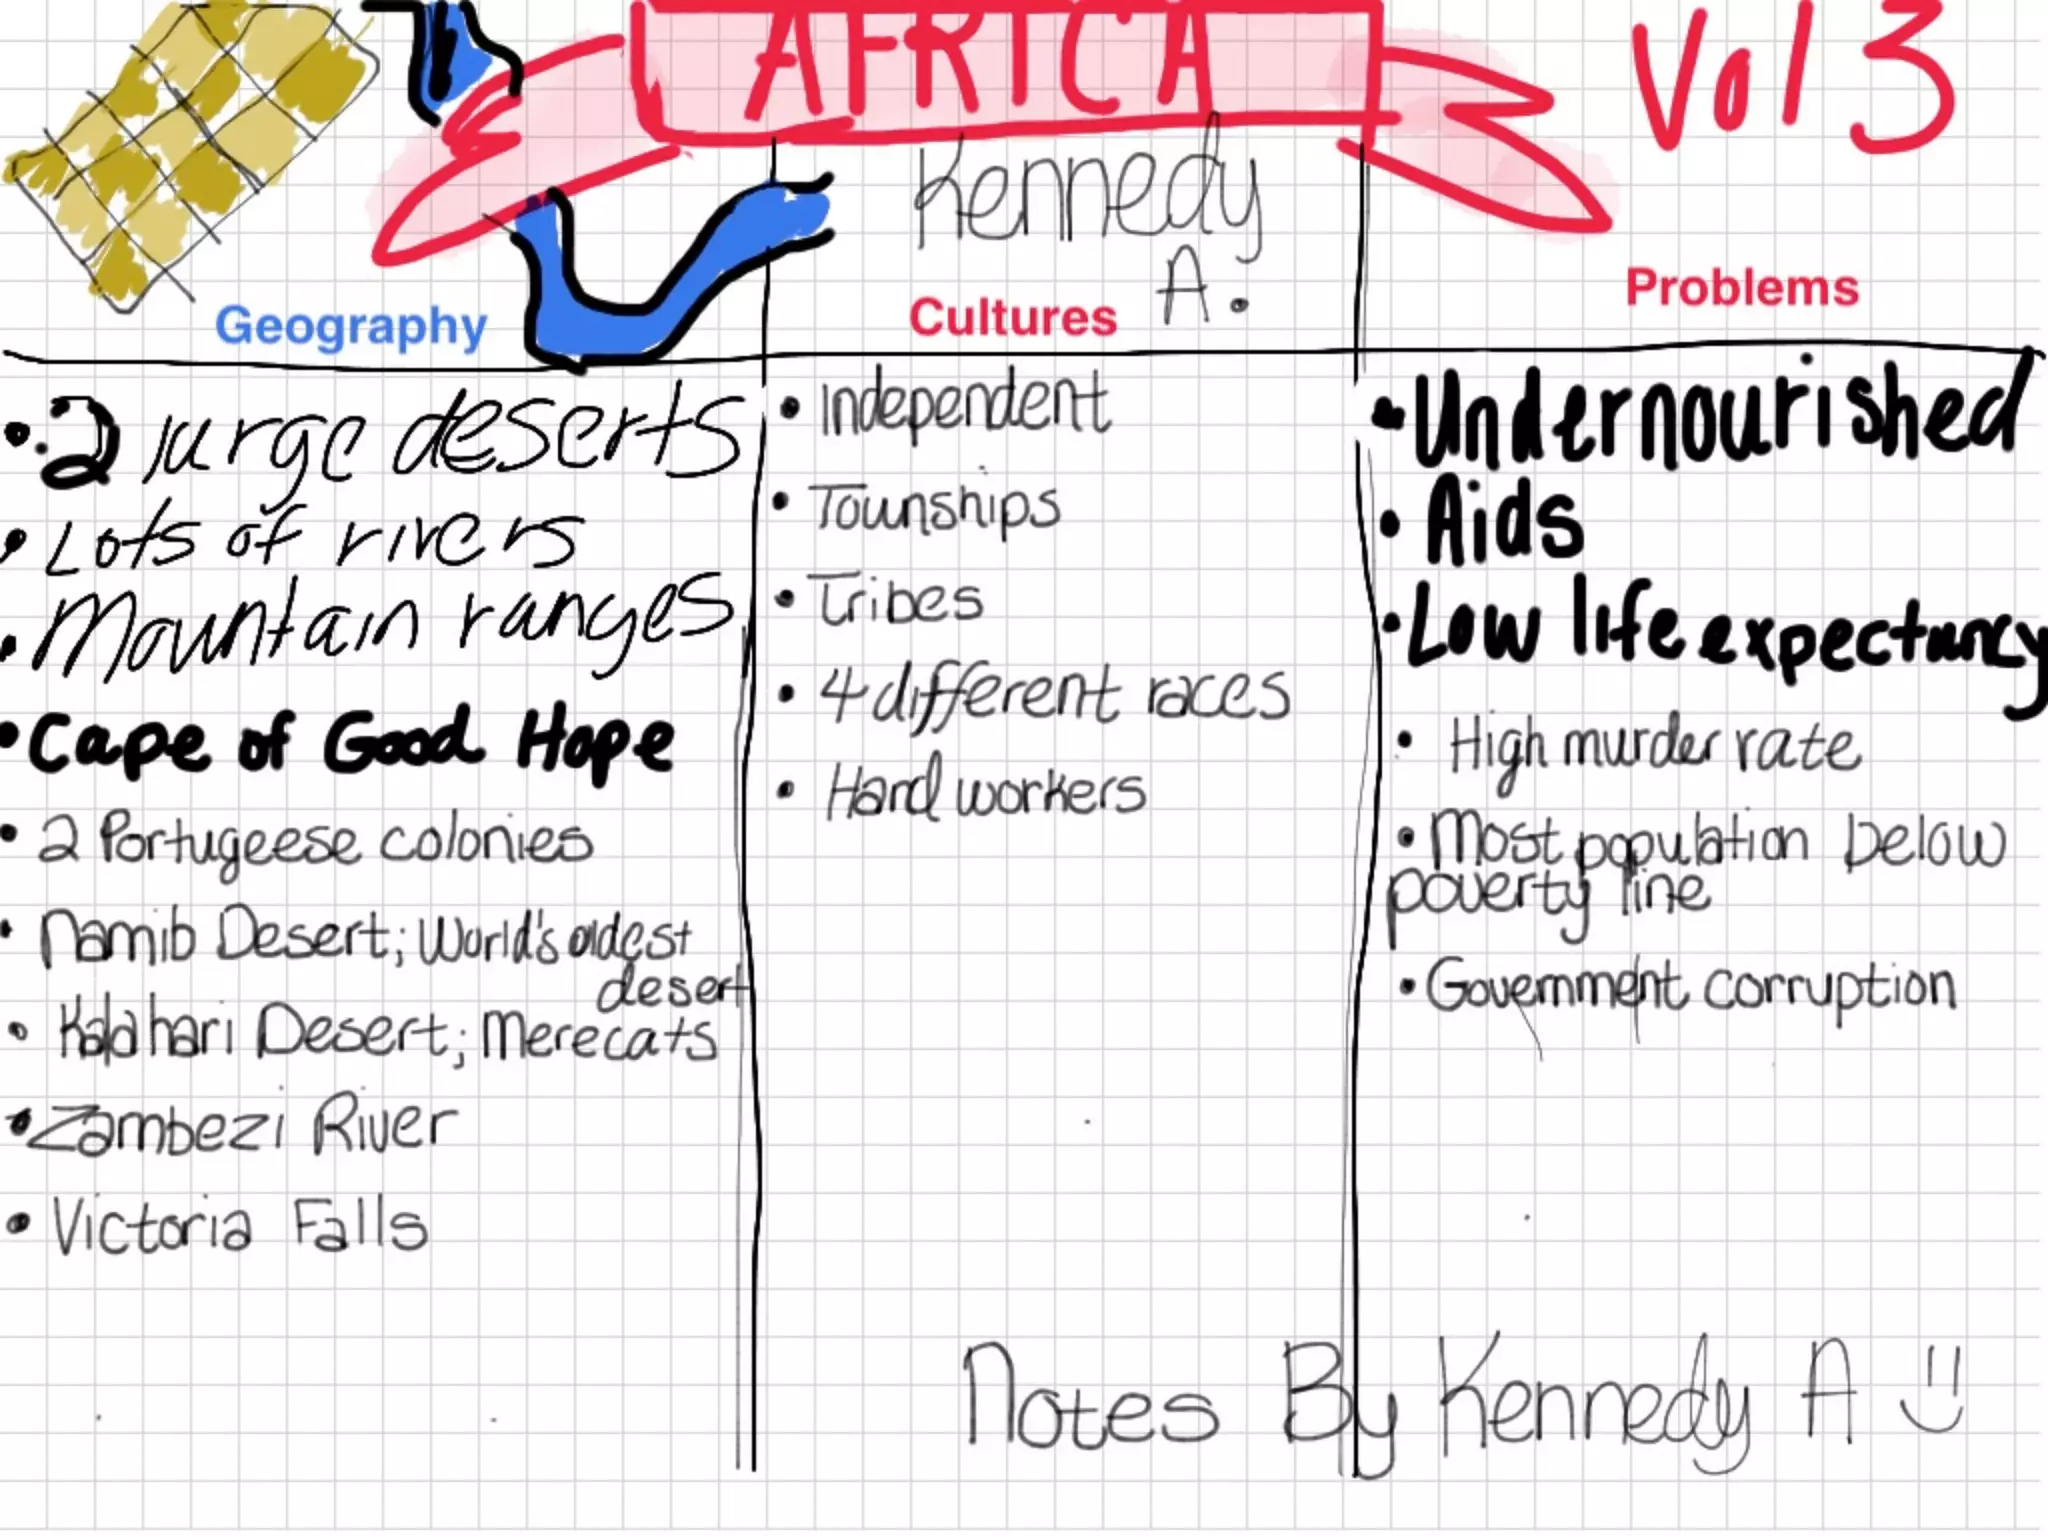 AFRICA
Vol 3
Kennedy
A.
Geography
Cultures
Problems
• 2 large deserts
• Lots of rivers
• Mountain ranges
• Cape of Good Hope
• 2 Portugeese colonies
• Namib Desert; World's oldest
desert
• Kalahari Desert; Merecats
• Zambezi River
• Victoria Falls
• Independent
• Townships
• Tribes
• 4 different races
• Hard workers
• Undernourished
• Aids
• Low life expectancy
• High murder rate
• Most population below
poverty line
• Government corruption
Notes By Kennedy A